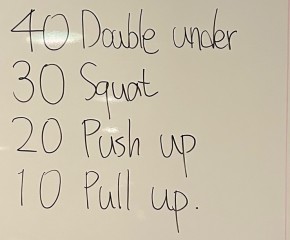 40 Double under
30 Squat
20 Push up
10 Pull up.